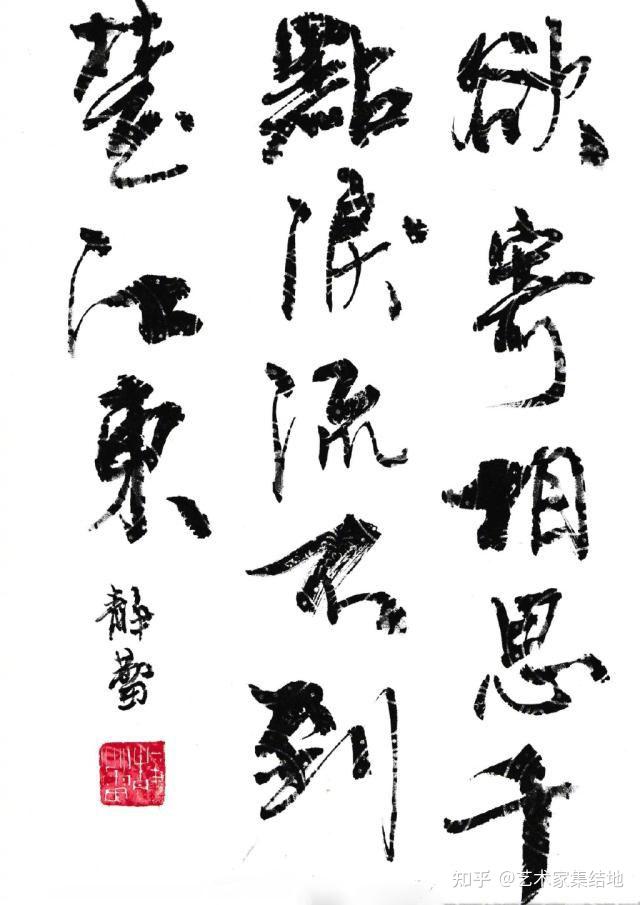 欲寄相思千
點淚流不到
楚江東
知乎 @艺术家集结地